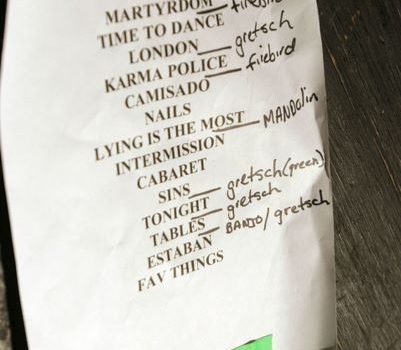 MARTYRDOM — firebird
TIME TO DANCE
LONDON — gretsch
KARMA POLICE — firebird
CAMISADO
NAILS
LYING IS THE MOST — MANDOLIN
INTERMISSION
CABARET
SINS — gretsch(green)
TONIGHT — gretsch
TABLES — BANJO/gretsch
ESTABAN
FAV THINGS